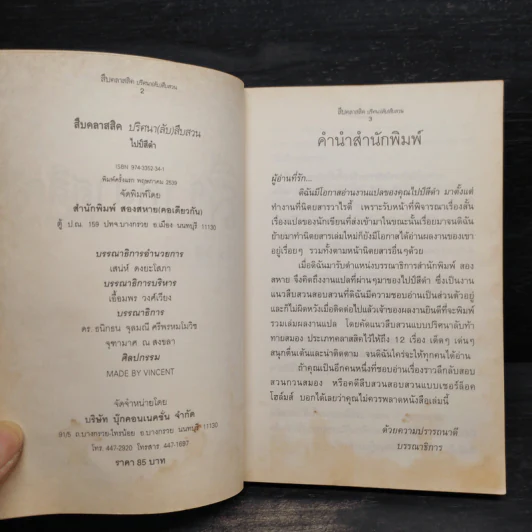 สืบคลาสสิค ปริศนา(ลับ)สืบสวน
2
สืบคลาสสิค ปริศนา(ลับ)สืบสวน
ไปป์สีดำ
ISBN 974-3352-34-1
พิมพ์ครั้งแรก พฤษภาคม 2539
จัดพิมพ์โดย
สำนักพิมพ์ สองสหาย(คอเดียวกัน)
ตู้ ปณ. 159 ปทจ.บางกรวย อ.เมือง นนทบุรี 11130
บรรณาธิการอำนวยการ
เสน่ห์
บรรณาธิการบริหาร
เอื้อมพร วงศ์เวียง
บรรณาธิการ
ดร. ธนิกธน จุลมณี ศรีพรหมโมวิช
จุฑามาศ ณ สงขลา
ศิลปกรรม
MADE BY VINCENT
จัดจำหน่ายโดย
บริษัท บุ๊กคอนเนคชั่น จำกัด
91/6 ถ.บางกรวย-ไทรน้อย อ.บางกรวย นนทบุรี 11130
โทร. 447-2920 โทรสาร. 447-1697
ราคา 85 บาท
สืบคลาสสิค ปริศนา(ลับ)สืบสวน
3
คำนำสำนักพิมพ์
ผู้อ่านที่รัก...
ดิฉันมีโอกาสอ่านงานแปลของคุณไปป์สีดำ มาตั้งแต่
ทำงานที่นิตยสารวาไรตี้ เพราะรับหน้าที่พิจารณาเรื่องสั้น
เรื่องแปลของนักเขียนที่ส่งเข้ามาในขณะนั้นเรื่อยมาจนดิฉัน
ย้ายมาทำนิตยสารเล่มใหม่ก็ยังมีโอกาสได้อ่านผลงานของเขา
อยู่เรื่อยๆ รวมทั้งตามหน้านิตยสารอื่นๆด้วย
เมื่อดิฉันมารับตำแหน่งบรรณาธิการสำนักพิมพ์ สอง
สหาย จึงคิดถึงงานแปลที่ผ่านๆมาของไปป์สีดำ ซึ่งเป็นงาน
แนวสืบสวนสอบสวนที่ดิฉันมีความชอบอ่านเป็นส่วนตัวอยู่
และก็ไม่ผิดหวังเมื่อติดต่อไปแล้วเจ้าของผลงานยินดีที่จะพิมพ์
รวมเล่มผลงานแปล โดยคัดแนวสืบสวนแบบปริศนาลับท้า
ทายสมอง ประเภทคลาสสิคไว้ให้ถึง 12 เรื่อง เด็ดๆ เด่นๆ
สนุกตื่นเต้นและน่าติดตาม จนดิฉันใคร่จะให้ทุกคนได้อ่าน
ถ้าคุณเป็นอีกคนหนึ่งที่ชอบอ่านเรื่องราวลึกลับสอบ
สวนกวนสมอง หรือคดีสืบสวนสอบสวนแบบเชอร์ล็อค
โฮล์มส์ บอกได้เลยว่าคุณไม่ควรพลาดหนังสือเล่มนี้
ด้วยความปรารถนาดี
บรรณาธิการ